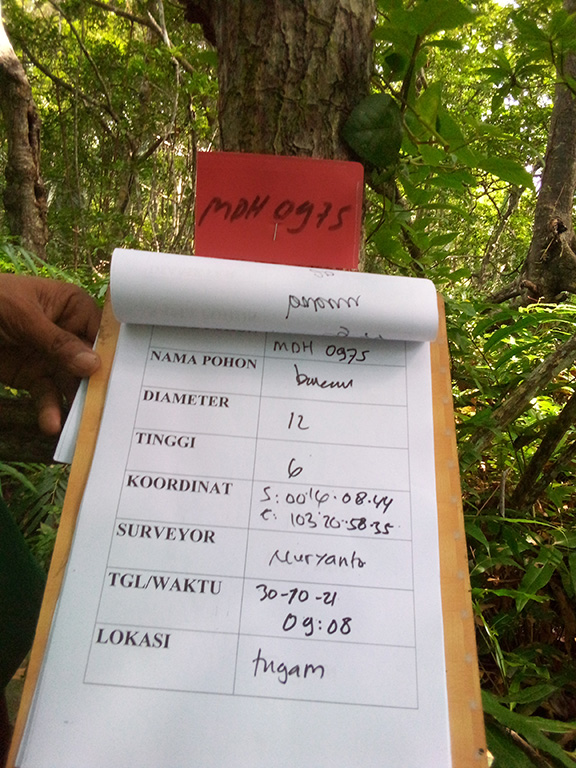 MDH 0975
MDH 0975
NAMA POHON
DIAMETER 12
TINGGI 6
KOORDINAT S: 00.16.08.44
E: 103.20.58.35
SURVEYOR Nuryanto
TGL/WAKTU 30-10-21
09:08
LOKASI tugam